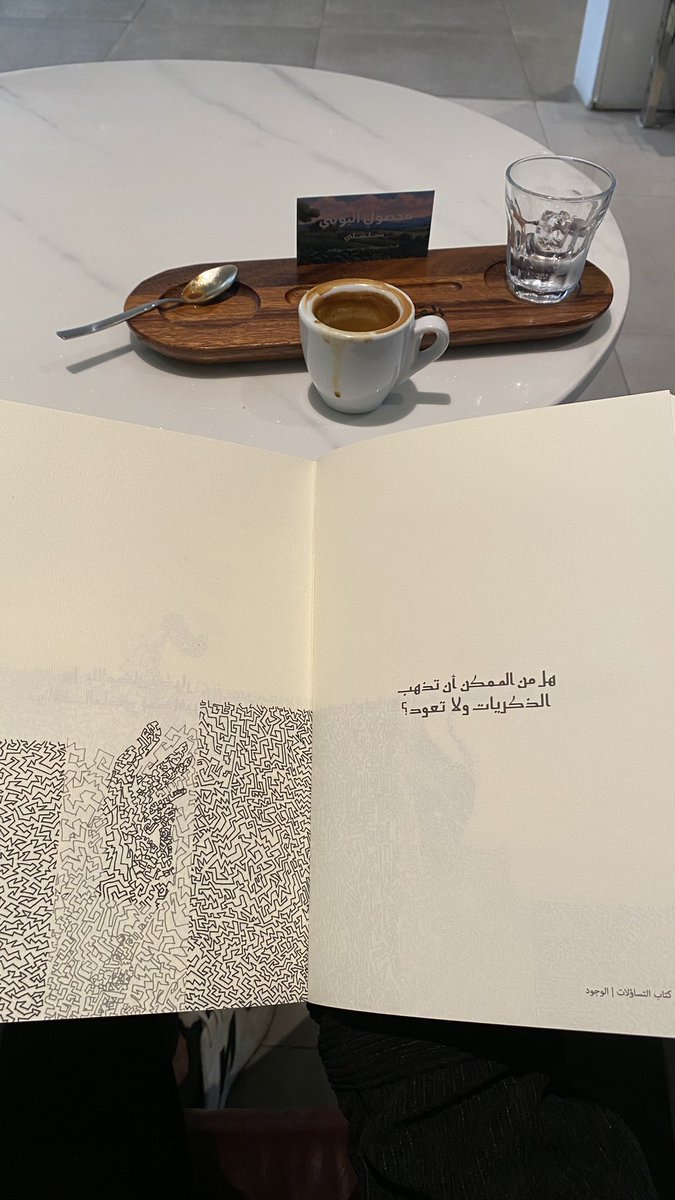 محصول اثيوبي
هل من الممكن أن تذهب
الذكريات ولا تعود؟
كتاب التساؤلات | الوجود